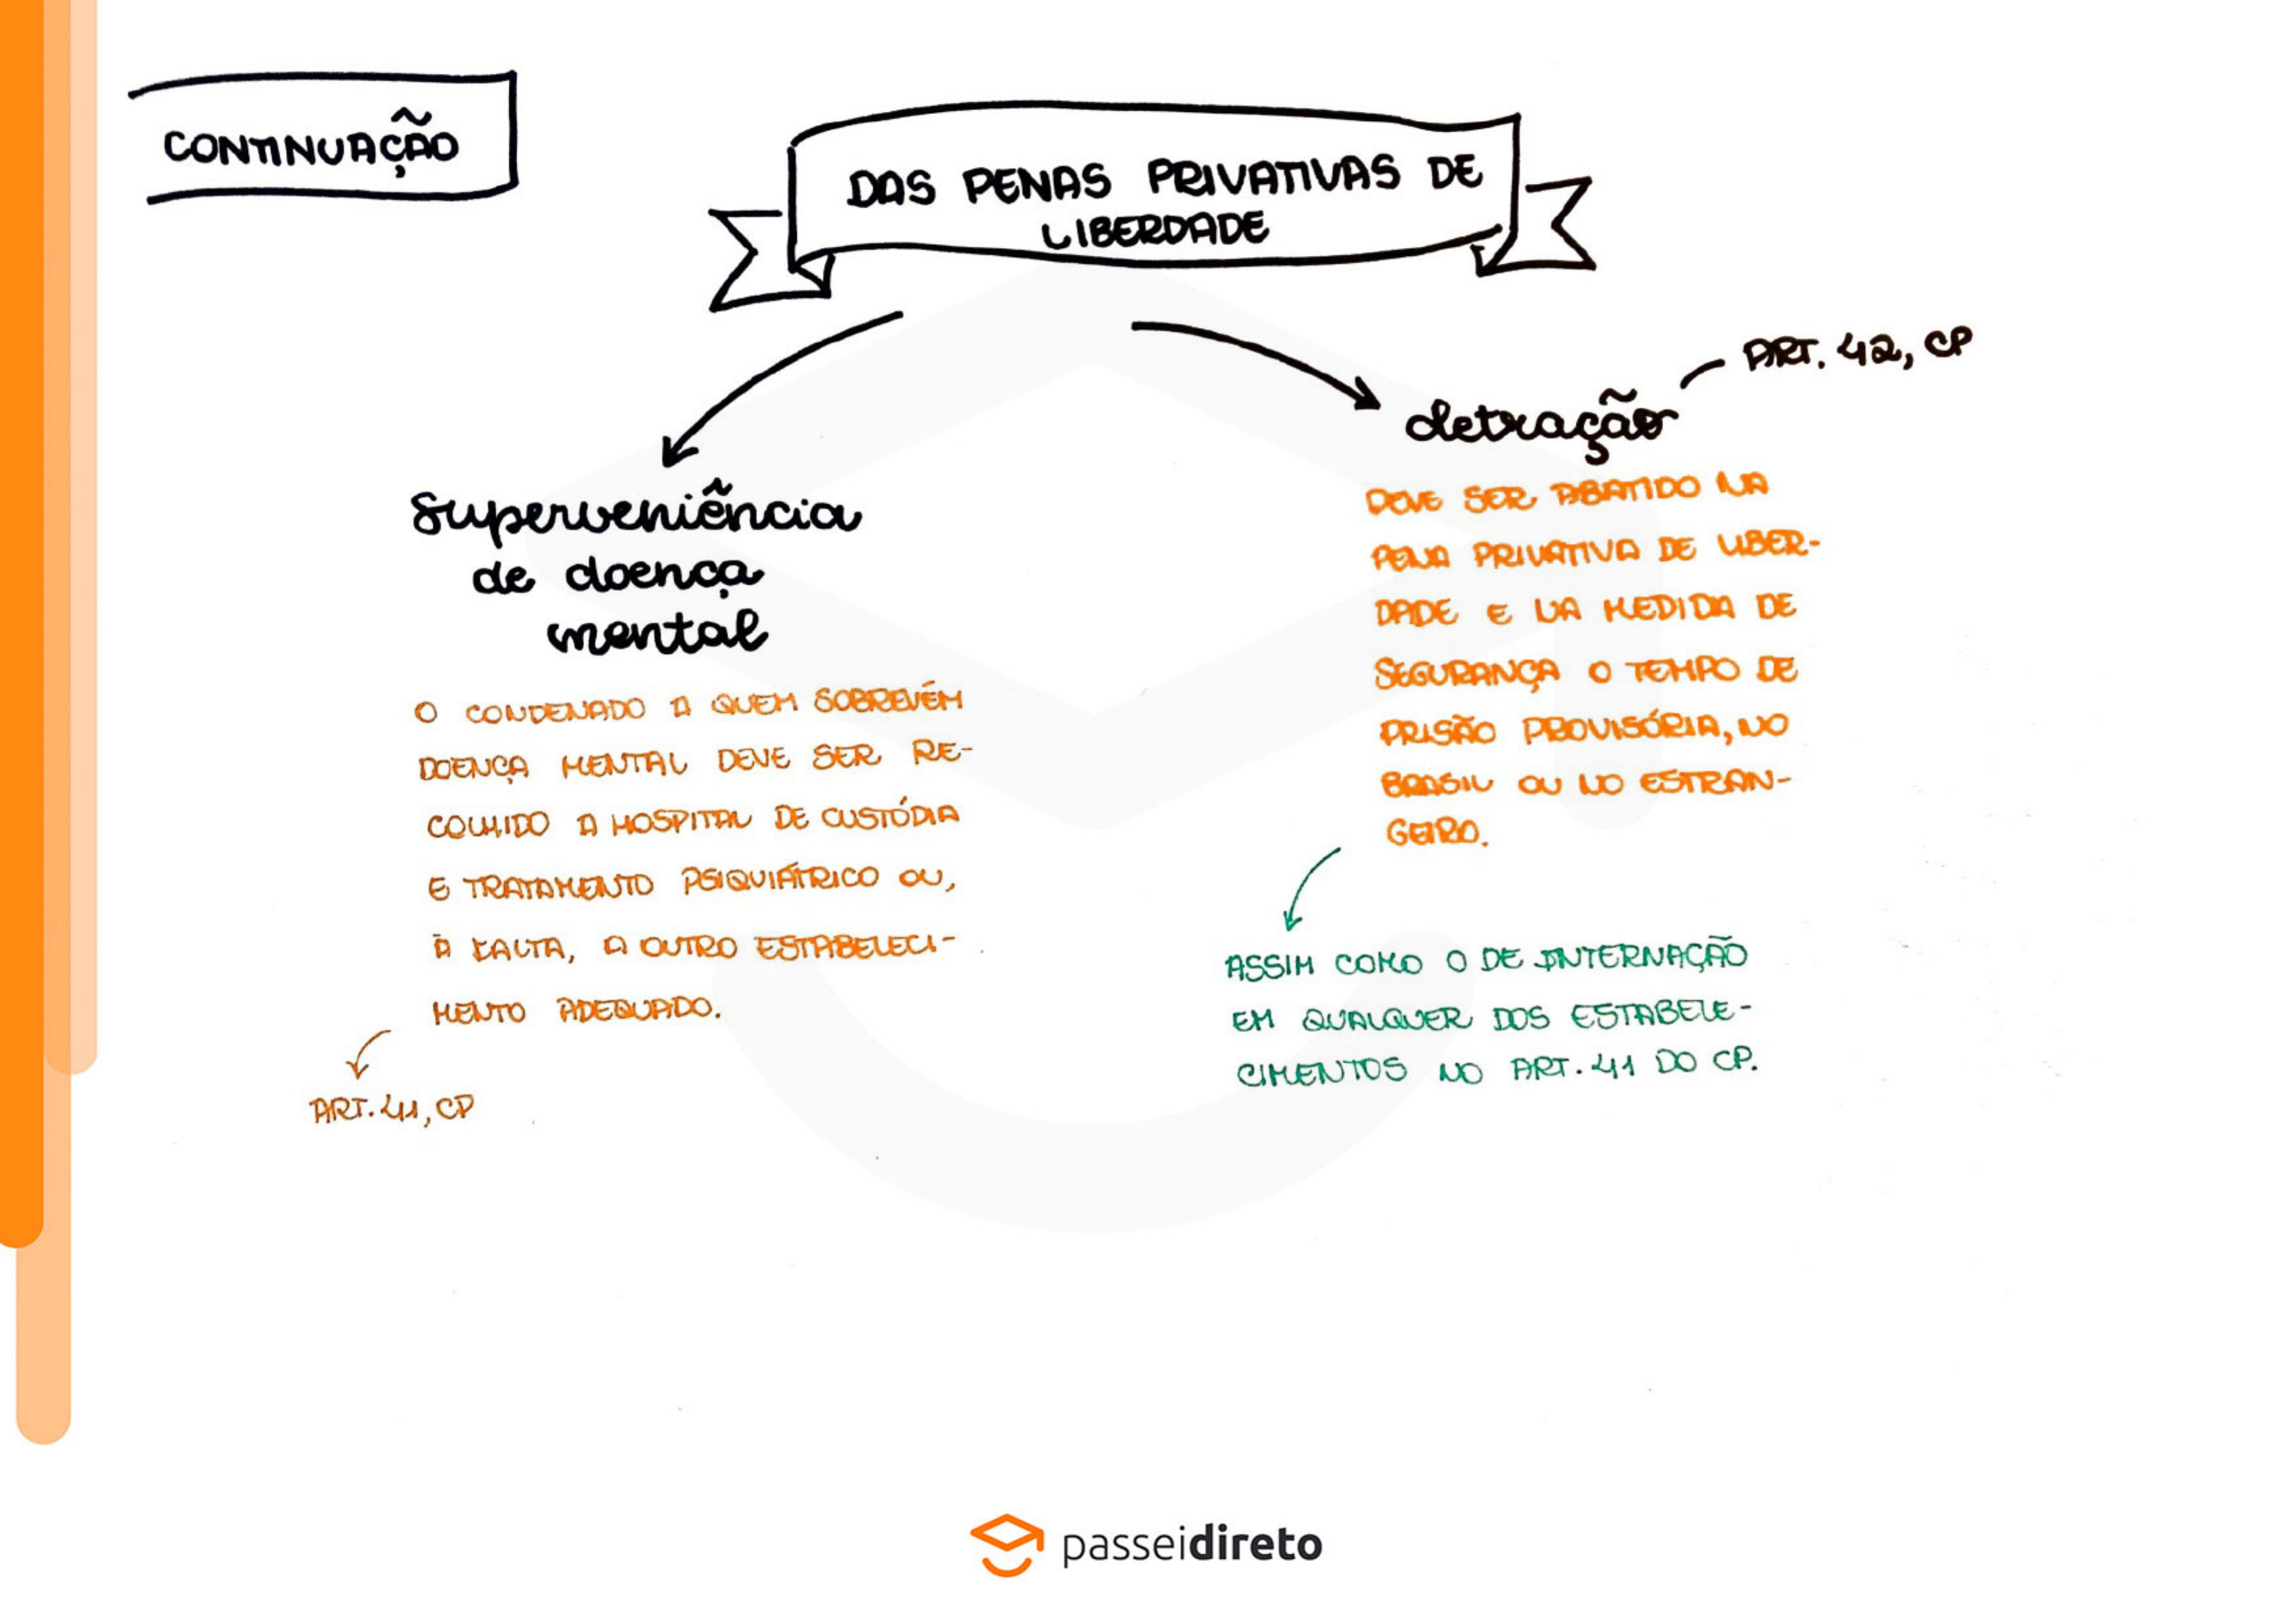 CONTINUAÇÃO
DAS PENAS PRIVATIVAS DE
LIBERDADE
ART. 42, CP
detração
DEVE SER ABATIDO NA
PENA PRIVATIVA DE LIBER-
DADE E NA MEDIDA DE
SEGURANÇA O TEMPO DE
PRISÃO PROVISÓRIA, NO
BRASIL OU NO ESTRAN-
GEIRO.
ASSIM COMO O DE INTERNAÇÃO
EM QUALQUER DOS ESTABELE-
CIMENTOS NO ART. 41 DO CP.
Superveniência
de doença
mental
O CONDENADO A QUEM SOBREVÉM
DOENÇA MENTAL DEVE SER RE-
COLHIDO A HOSPITAL DE CUSTÓDIA
E TRATAMENTO PSIQUIÁTRICO OU,
À FALTA, A OUTRO ESTABELECI-
MENTO ADEQUADO.
ART. 41, CP
passeidireto